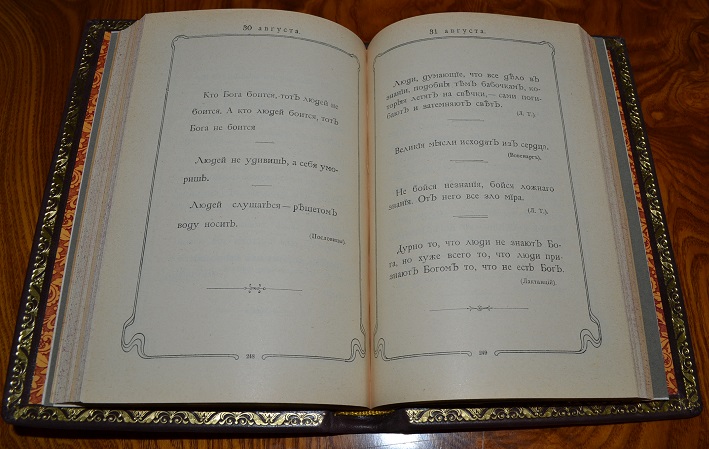 30 августа.
Кто Бога боится, тотъ людей не
боится. А кто людей боится, тотъ
Бога не боится
Людей не удивишь, а себя умо-
ришь.
Людей слушаться—рѣшетомъ
воду носить.
(Пословицы).
31 августа.
Люди, думающіе, что все дѣло въ
знаніи, подобны тѣмъ бабочкамъ, ко-
торыя летятъ на свѣчки,—сами поги-
баютъ и затемняютъ свѣтъ.
(Л. Т.)
Великія мысли исходятъ изъ сердца.
(Вовенаргъ).
Не бойся незнанія, бойся ложнаго
знанія. Отъ него все зло міра.
(Л. Т.)
Дурно то, что люди не знаютъ Бо-
га, но хуже всего то, что люди при-
знаютъ Богомъ то, что не есть Богъ.
(Лактанцій).